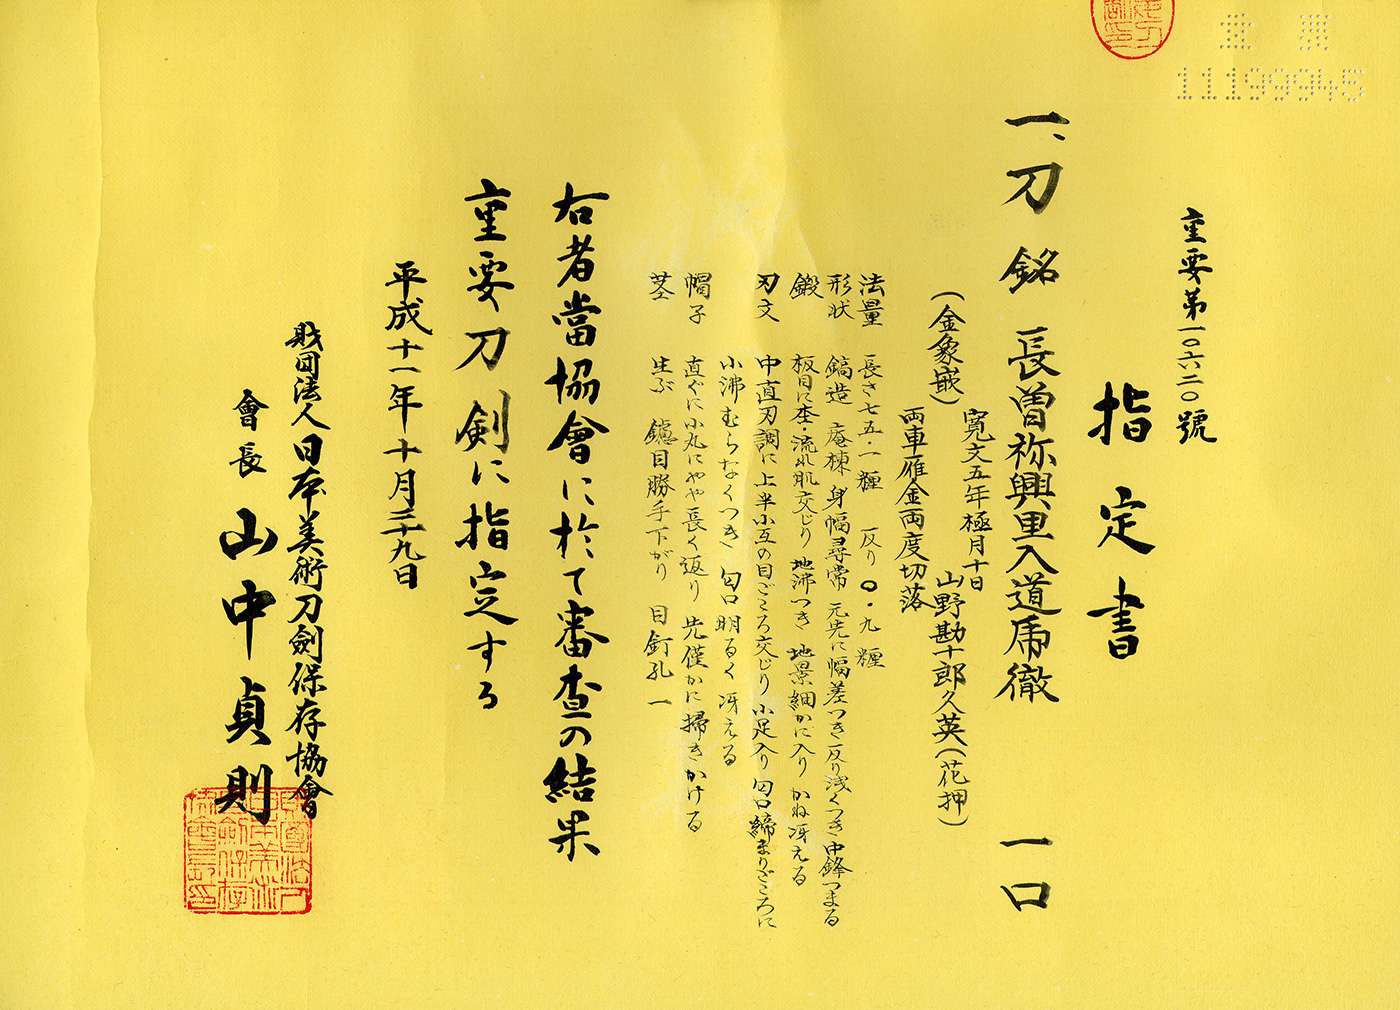 重要第一〇六二〇號
指定書
一、刀 銘 長曽祢興里入道乕徹 一口
寛文五年極月十日
(金象嵌) 山野勘十郎久英(花押)
両車雁金両度切落
法量 長さ七五・一糎 反り〇・九糎
形状 鎬造 庵棟 身幅尋常 元先に幅差つき 反り浅くつき 中鋒つまる
鍛 板目に杢・流れ肌交じり 地沸つき 地景細かに入り かね冴える
刃文 中直刃調に 上半小互の目ごころ交じり 小足入り 匂口締まりごころに
小沸むらなくつき 匂口明るく冴える
帽子 直ぐに小丸にやや長く返り 先僅かに掃きかける
茎 生ぶ 鑢目勝手下がり 目釘孔一
右者當協會に於て審査の結果
重要刀剣に指定する
平成十一年十月二十九日
財団法人日本美術刀劍保存協會
會長 山中貞則
重要
11199945